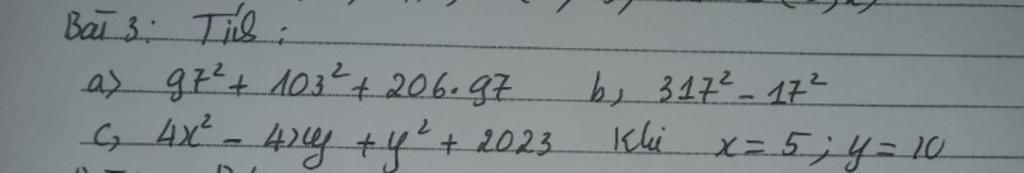 Bài 3: Tính:
a) 97² + 103² + 206.97 b, 317² - 17²
c, 4x² - 4xy + y² + 2023 Khi x = 5; y = 10